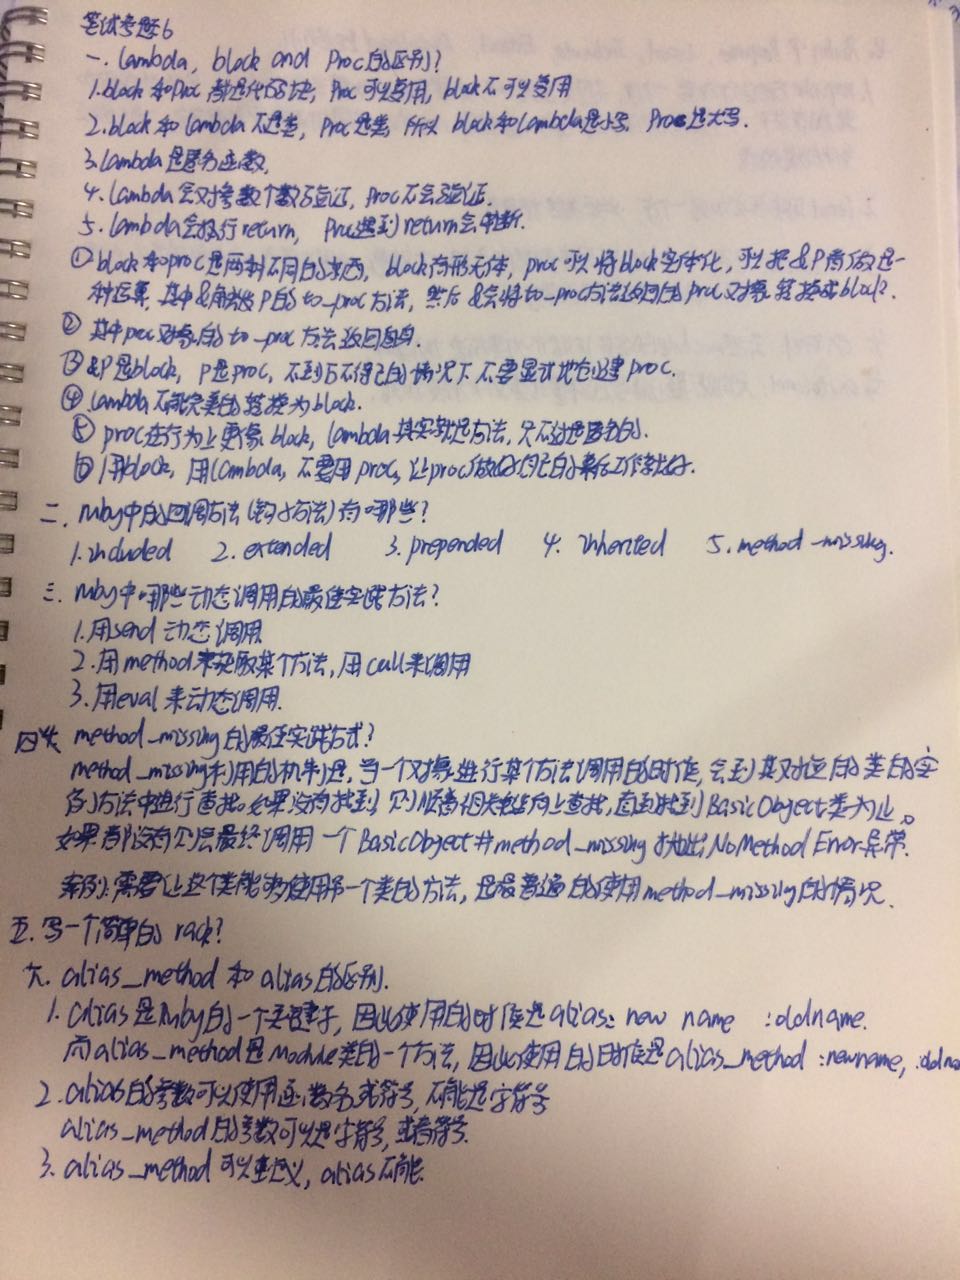 笔试考题6
一. lambda, block and Proc的区别?
1.block和Proc都是代码块, Proc可以复用, block不可以复用
2.block和lambda不是类, Proc是类, 所以block和lambda是小写, Proc是大写.
3.lambda是匿名函数.
4.lambda会对参数个数验证, Proc不会验证.
5.lambda会执行return, Proc遇到return会中断.
①block和proc是两种不同的东西, block有形无体, proc可以将block实体化, 可以把&P看做是一
种运算, 其中&触发P的to_proc方法, 然后&会将to_proc方法返回的proc对象转换成block?.
② 其中proc对象的to_proc方法返回自身.
③&P是block, P是proc, 不到万不得已的情况下不要显式地创建proc.
④lambda不能完美的转换为block.
⑤proc在行为上更像block, lambda其实就是方法, 只不过是匿名的.
⑥用block, 用lambda, 不要用proc, 让proc做好自己的幕后工作就好.
二. ruby中的回调方法(钩子方法)有哪些?
1.included 2.extended 3.prepended 4.inherited 5.method_missing.
三. ruby中哪些动态调用的最佳实践方法?
1.用send动态调用
2.用method来获取某个方法, 用call来调用
3.用eval来动态调用.
四. method_missing的最佳实践方式?
method_missing利用的机制是, 当一个对象进行某个方法调用的时候, 会到其对应的类的实
例方法中进行查找. 如果没有找到, 则顺着祖先链向上查找, 直到找到BasicObject类为止。
如果都没有则会最终调用一个BasicObject#method_missing抛出NoMethodError异常.
案例: 需要让这个类能够使用另一个类的方法, 是最普遍的使用method_missing的情况.
五. 写一个简单的rack?
六. alias_method和alias的区别.
1. alias是Ruby的一个关键字, 因此使用的时候是alias :new name :oldname.
而alias_method是Module类的一个方法, 因此使用的时候是alias_method :newname, :oldna
2.alias的参数可以使用函数名或符号, 不能是字符号
alias_method的参数可以是字符号, 或者符号.
3. alias_method可以重定义, alias不能.